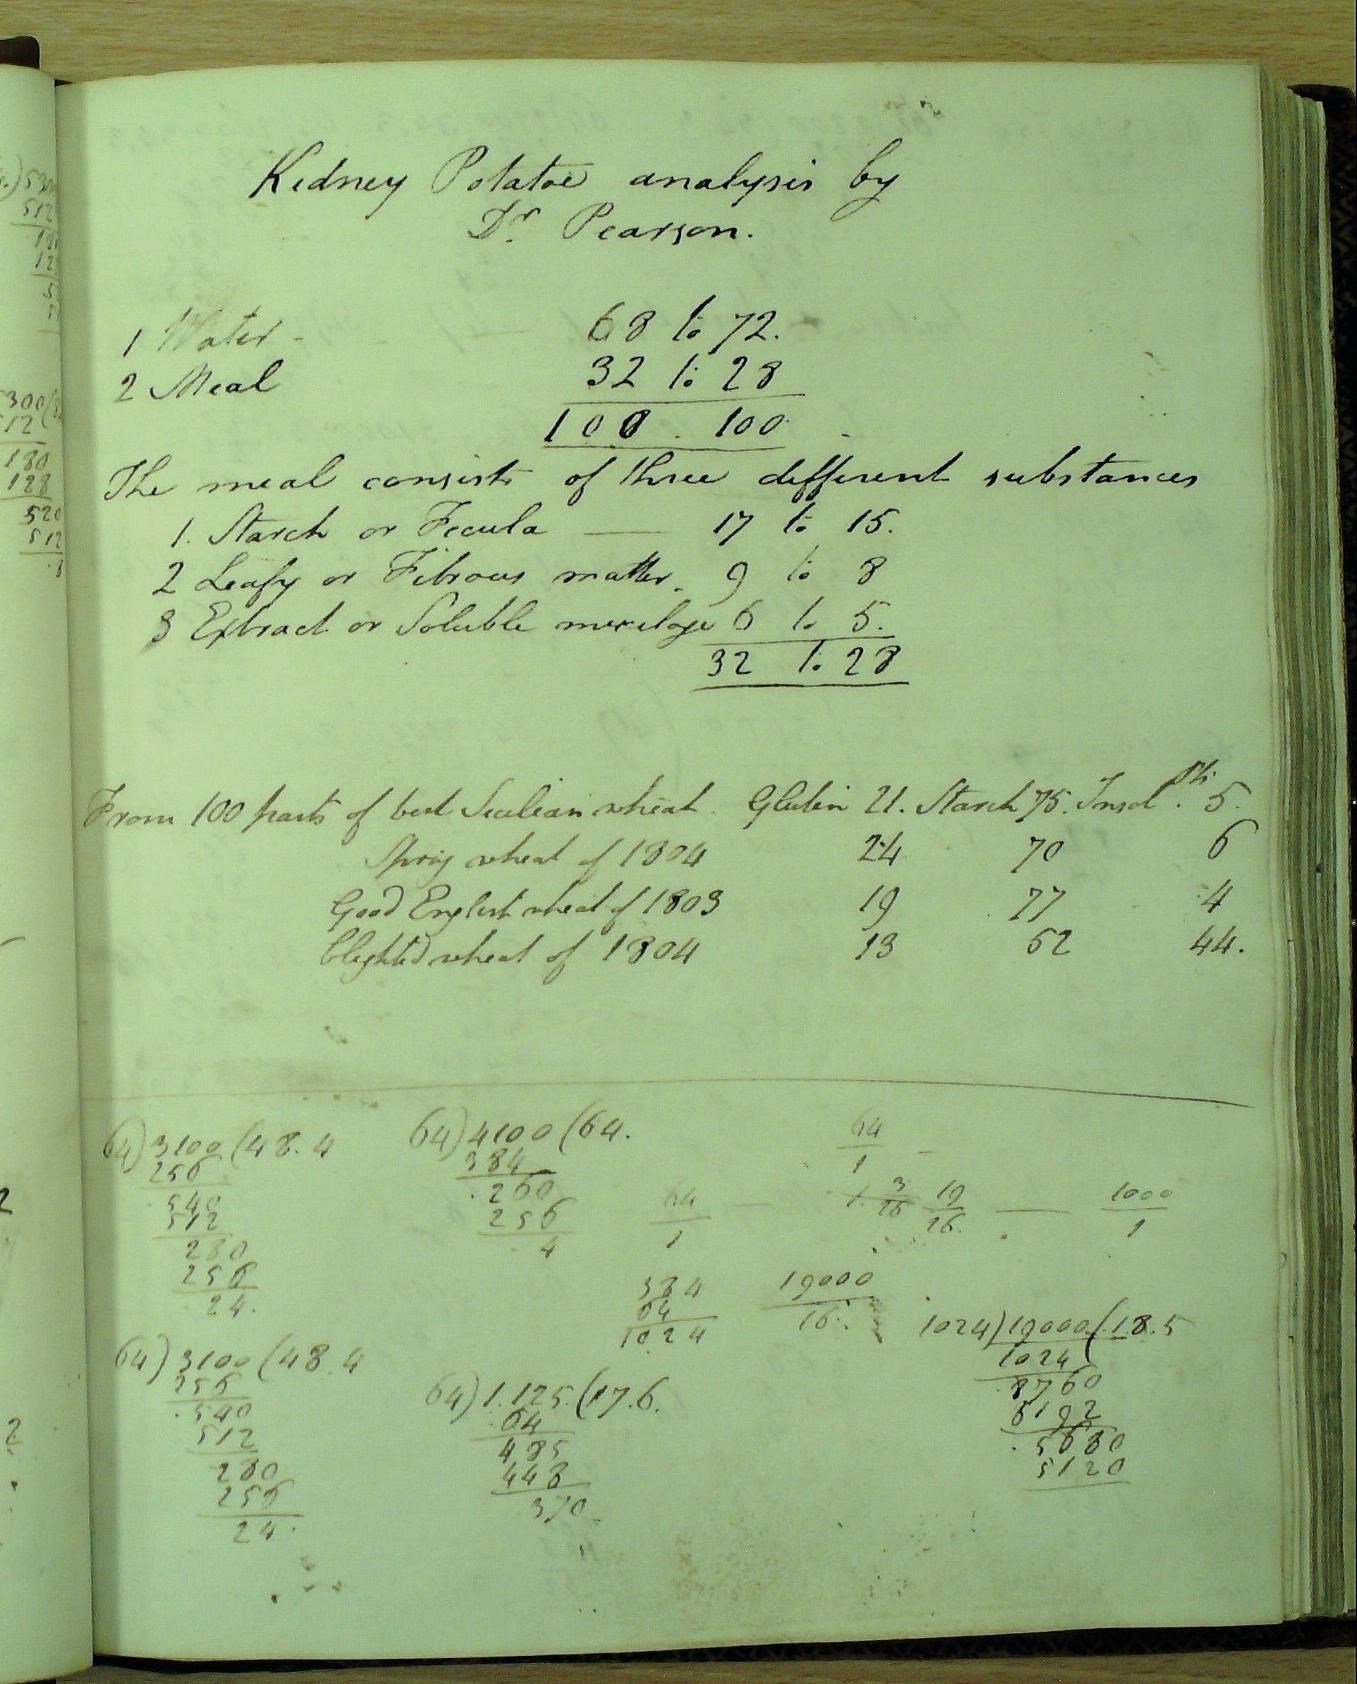 Kidney Potatoe analysis by
Dr. Pearson.
1 Water - 68 to 72.
2 Meal 32 to 28
100 . 100
The meal consists of three different substances
1. Starch or Fecula — 17 to 15.
2 Leafy or Fibrous matter. 9 to 8
3 Extract or Soluble mucilage 6 to 5.
32 to 28
From 100 parts of best Sicilian wheat. Glutin 21. Starch 75. Insol. pts. 5.
Spring wheat of 1804 24 70 6
Good English wheat of 1803 19 77 4
blighted wheat of 1804 13 52 44.
64) 3100 (48.4
256
540
512
280
256
24.
64) 4100 (64.
384
.260
256
4
64
1
64
1
3
16
19
16
1000
1
384
64
1024
19000
16.
1024) 19000 (18.5
1024
8760
8192
.5680
5120
64) 3100 (48 4
256
.540
512
280
256
24.
64) 1.125. (17.6.
64
485
448
370